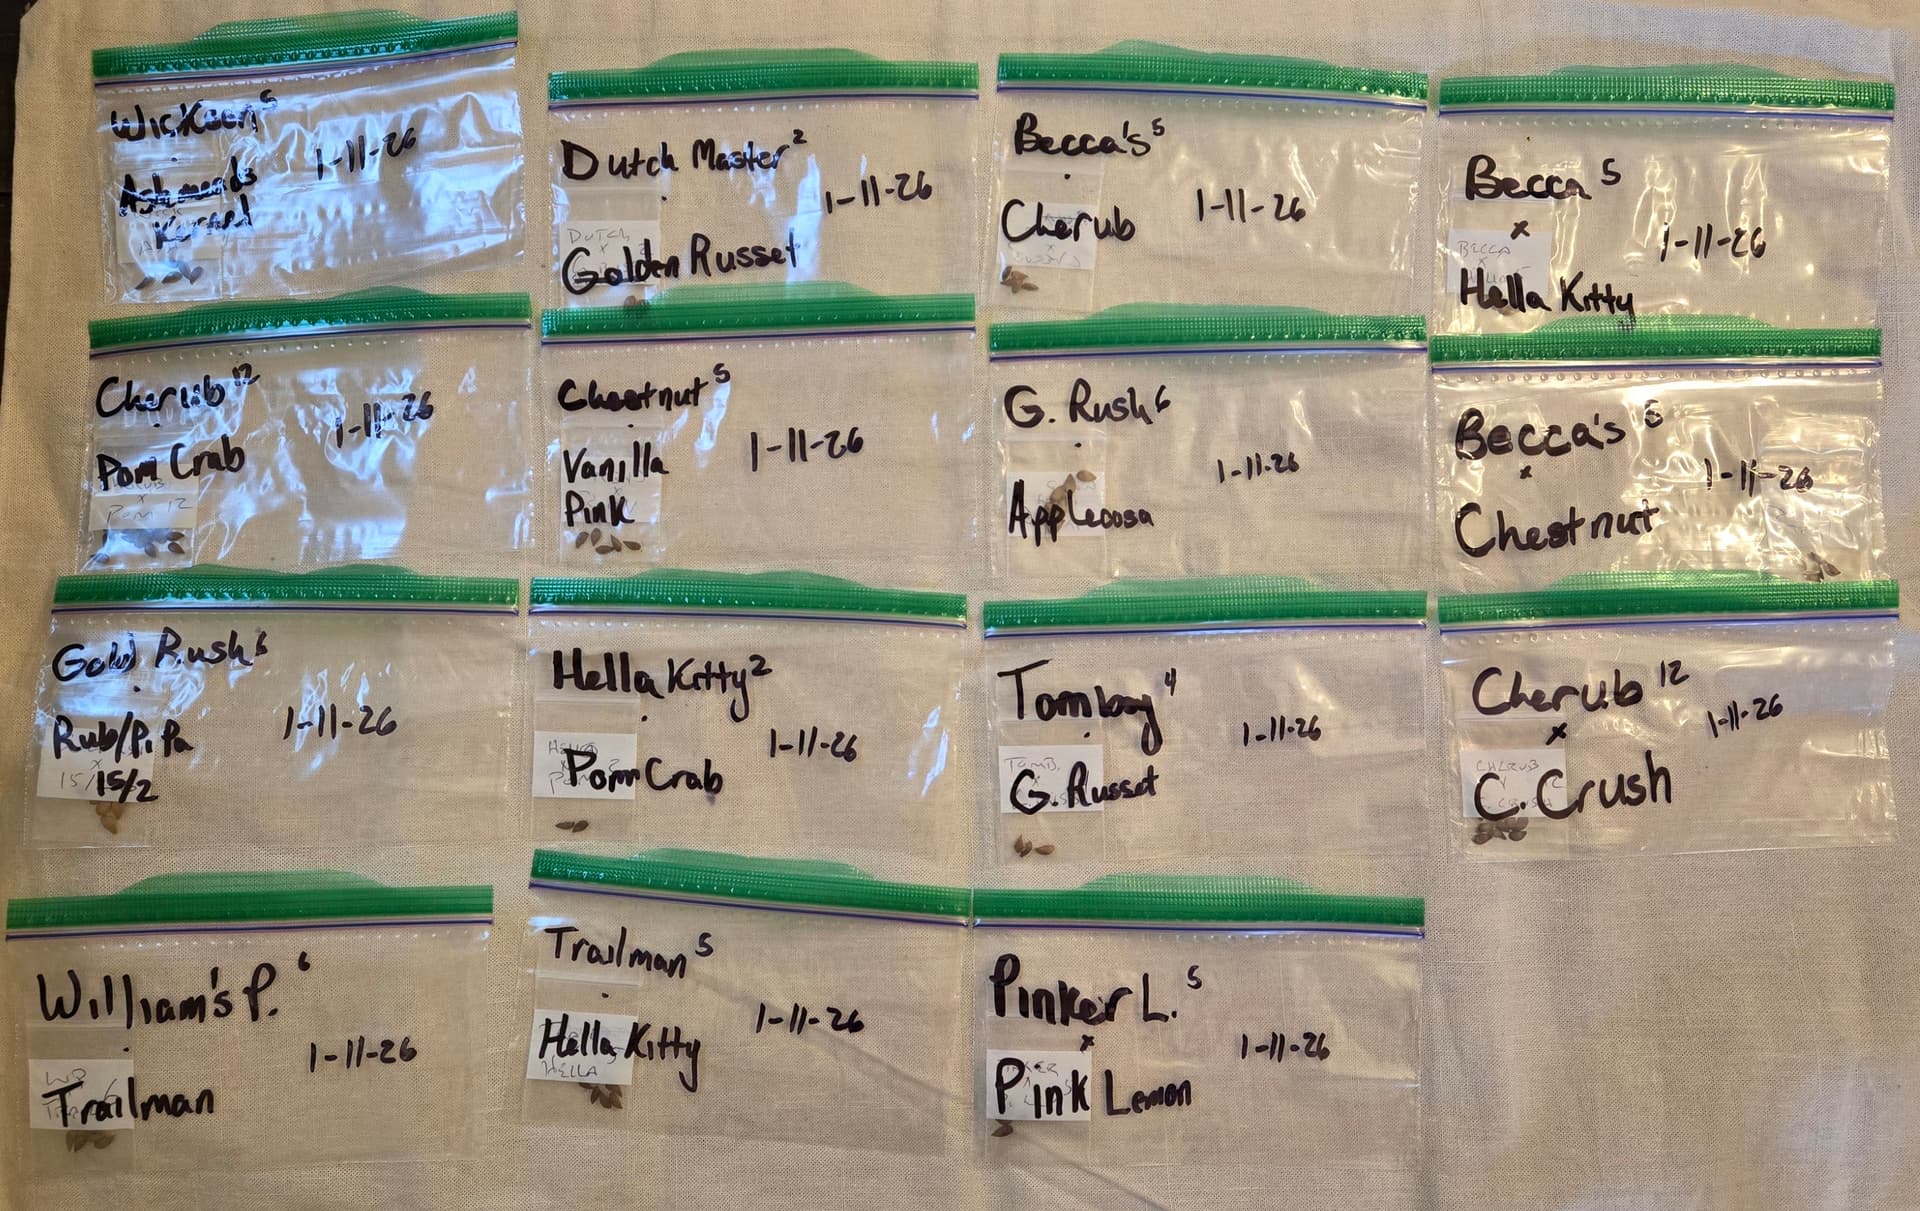 Wickson 5
Ashmeads
Kernel
1-11-26
Dutch Master 2
Golden Russet
1-11-26
DUTCH
x
Becca's 5
Cherub
1-11-26
Becca 5
x
Hella Kitty
1-11-26
BECCA
x
Cherub 12
Pom Crab
1-11-26
x
POM 12
Chestnut 5
Vanilla
Pink
1-11-26
G. Rush 6
Appleoosa
1-11-26
Becca's 5
x
Chestnut
1-11-26
Gold Rush 6
Rub/Pi Pa
15/2
1-11-26
x
15/
Hella Kitty 2
Pom Crab
1-11-26
HELLA
Tomboy 4
G. Russet
1-11-26
TOMB.
x
Cherub 12
x
C. Crush
1-11-26
CHERUB
William's P. 6
Trailman
1-11-26
WP
Trailman 5
Hella Kitty
1-11-26
HELLA
Pinker L. 5
x
Pink Lemon
1-11-26